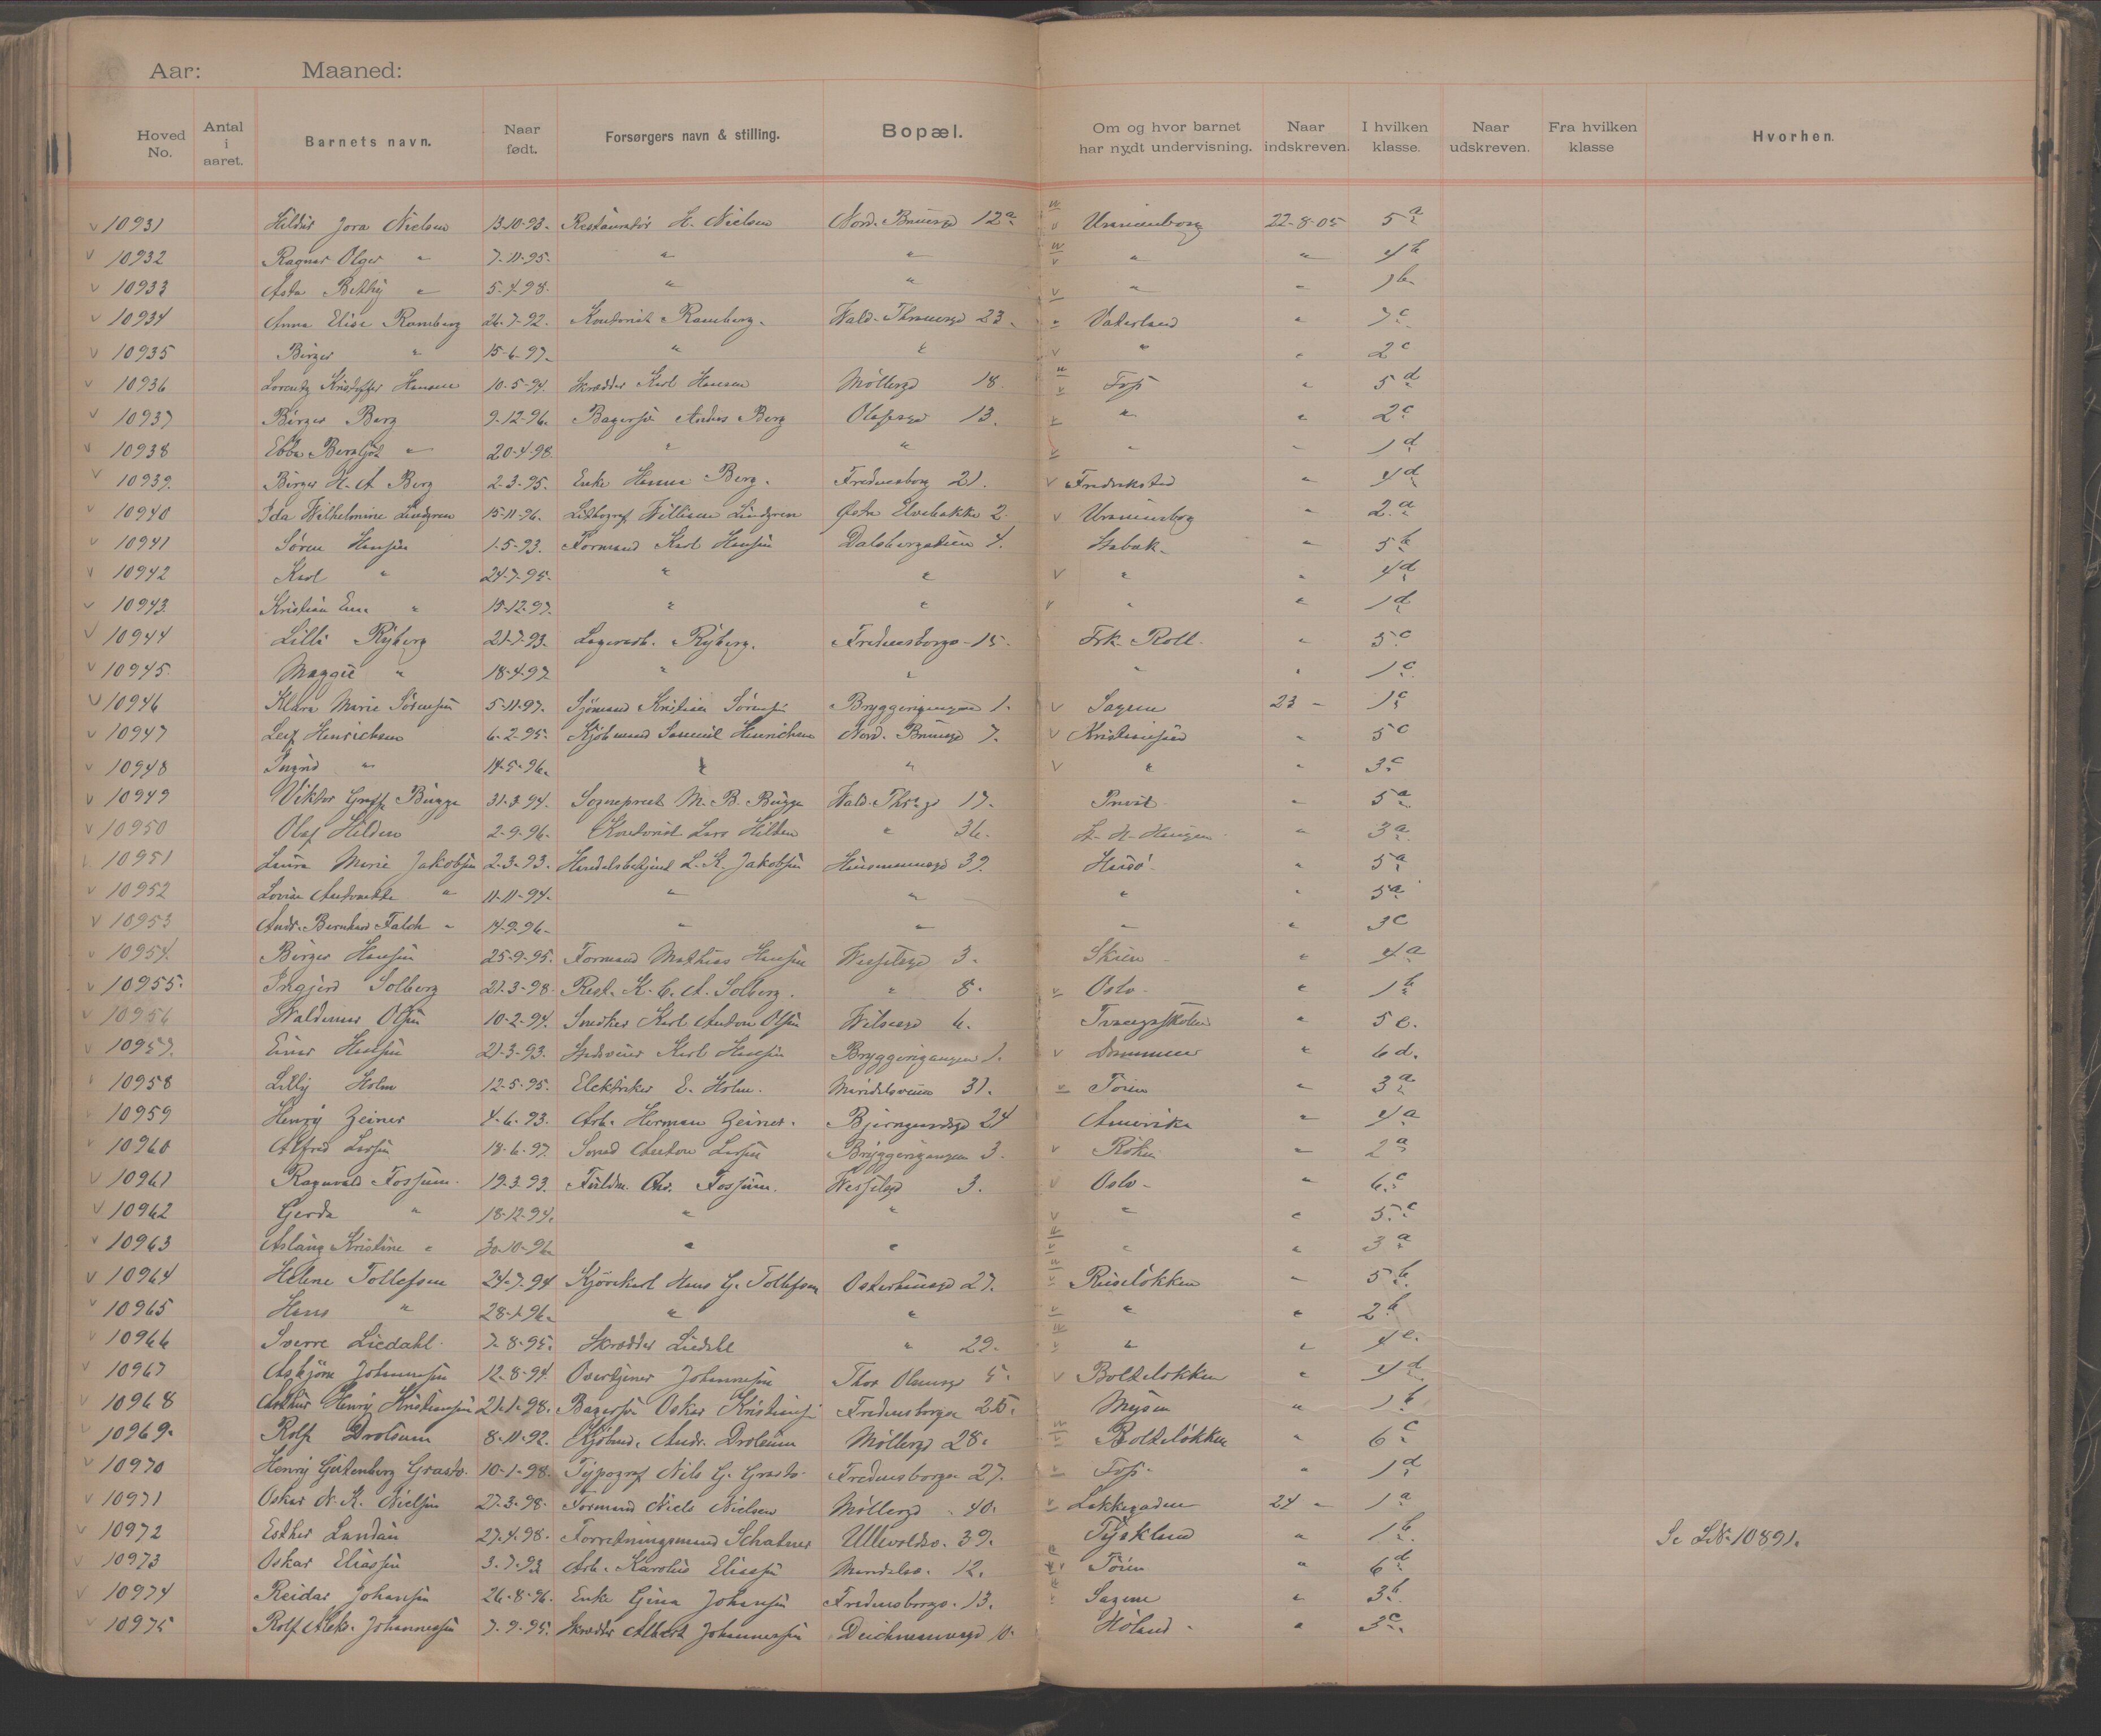 Aar: Maaned:
Hoved No. Antal i aaret. Barnets navn. Naar født. Forsørgers navn & stilling. Bopæl. Om og hvor barnet har nydt undervisning. Naar indskreven. I hvilken klasse. Naar udskreven. Fra hvilken klasse Hvorhen.
10931 Hildur Jora Nielsen 13-10-93. Restauratør H. Nielsen Nord. Bruunsgd 12a Uranienborg 22-8-05 5a
10932 Ragnar Olger " 7-11-95. " " " " 4b
10933 Asta Betty " 5-4-98. " " " " 1b
10934 Anna Elise Ramberg 26-7-92. Kontorist Ramberg. Wald. Thranesgd 23. Vaterland " 7c
10935 Birger " 15-6-97. " " " " 2c
10936 Lorentz Kristoffer Hansen 10-5-94. Skrædder Karl Hansen Møllergd 18 Foss " 5d
10937 Birger Berg 9-12-96. Bagersv. Anders Berg Olafsgd 13. " " 2c
10938 Ebba Bergljot " 20-4-98. " " " " 1d
10939. Birger H. A Berg 2-3-95. Enke Hanna Berg. Fredensborg 21. Fredrikstad " 4d
10940 Ida Wilhelmine Lindgren 15-11-96. Lithograf William Lindgren Østre Elvebakke 2. Uranienborg " 2.a
10941 Søren Hansen 1-5-93. Formand Karl Hansen Dalsbergstien 4. Stabæk. " 5b
10942 Karl " 24-7-95. " " " " 4d
10943. Kristian Einar " 15-12-97. " " " " 1d
10944 Lilli Ryberg 21-7-93. Lagerarb. Ryberg. Fredensborgv. 15. Frk. Roll. " 5c
10945. Maggie " 18-4-97 " " " " 1c
10946 Klara Marie Sørensen 5-11-97. Sjømand Kristian Sørensen Bryggerigangen 1. Sagene 23 - 1c
10947 Leif Henrichsen 6-2-95. Kjøbmand Samuel Henrichsen Nord. Bruunsgd 7. Kristiansand " 5c
10948 Ingrid " 14-5-96. " " " " 3c
10949 Viktor Graff Bugge 31-3-94. Sogneprest M. B. Bugge Wald. Thrsgd 17. Privat " 5a
10950 Olaf Hilden 2-9-96. Kontorist Lars Hilden " 36. " 3a
10951 Laura Marie Jakobsen 2-3-93. Handelsbetjent L. K. Jakobsen Hausmannsgd 39. Husø " 5a
10952 Lovise Antonette " 11-11-94. " " " " 5a
10953 Andr. Bernhard Falch " 14-9-96. " " " " 3c
10954. Birger Hansen 25-9-95. Formand Mathias Hansen Wesselsgd 3. Skien " 4a
10955. Ingjerd Solberg 21-3-98. Rest. K. C. A. Solberg. " 8. Oslo. " 1b
10956 Waldemar Olsen 10-2-94. Snedker Karl Anton Olsen Wilsesgd 6. Tvangsskolen " 5e.
10957. Einar Hansen 21-3-93. Karl Hansen Bryggerigangen 1. Drammen " 6d.
10958 Lilly Holm 12-5-95. Elektriker E. Holm. Maridalsveien 31. Tøien " 3a
10959 Henry Zeiner 4-6-93. Arb. Herman Zeiner. Bjerregaardsgd 24 Amerika " 4a
10960 Alfred Larsen 18-6-97. Smed Anton Larsen Bryggerigangen 3. Røken " 2a
10961 Ragnvald Fossum. 19-3-93. Fuldm. Chr. Fossum. Wesselsgd 3. Oslo. " 6.c
10962 Gerda " 18-12-94. " " " " 5.c
10963 Aslaug Kristine " 30-10-96. " " " " 3a
10964 Helene Tollefsen 24-7-94 Kjørekarl Hans G. Tollefsen Osterhausgd 27. Ruseløkken " 5b.
10965 Hans " 28-1-96. " " " " 2b
10966 Sverre Liedahl. 7-8-95. Skrædder Liedahl " 29. " " 4e.
10967 Asbjørn Johannesen 12-8-94. Overkjører Johannesen Thor Olsensgd 5. Bolteløkken " 4d
10968 Arthur Henry Kristiansen 21-1-98. Bagersv. Oskar Kristiansen Fredensborgv 25. Mysen " 1b
10969. Rolf Drolsum 8-11-92. Kjøbmd. Andr. Drolsum Møllergd 28. Bolteløkken " 6c
10970 Henry Gutenberg Grasto. 10-1-98. Typograf Nils G. Grasto. Fredensborgv 27. Foss. " 1d
10971 Oskar N. K. Nielsen 27-3-98. Formand Niels Nielsen Møllergd 40. Lakkegaden 24 - 1a
10972 Esther Landau 27-4-98. Forretningsmand Schatner Ullevoldsv. 39. Tyskland " 1b. Se LN. 10891.
10973 Oskar Eliassen 3-7-93 Arb. Karolius Eliassen Maridalsv. 12. Tøien " 6d
10974 Reidar Johansen 26-8-96. Enke Gina Johansen Fredensborgv. 13. Sagene " 3b.
10975 Rolf Aleks. Johannessen 7-9-95. Skrædder Albert Johannessen Deichmannsgd 10. Høland. " 3c.